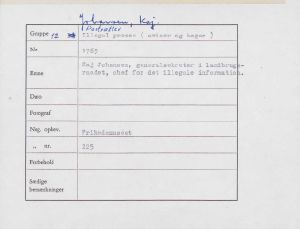 Johansen, Kaj.
Portrætter
Gruppe 12 Illegal presse ( aviser og bøger )
Nr. 1765
Emne Kaj Johansen, generalsekretær i landbrugs-
raadet, chef for det illegale information.
Dato
Fotograf
Neg. opbev. Frihedsmuseet
„ nr. 225
Forbehold
Særlige
bemærkninger